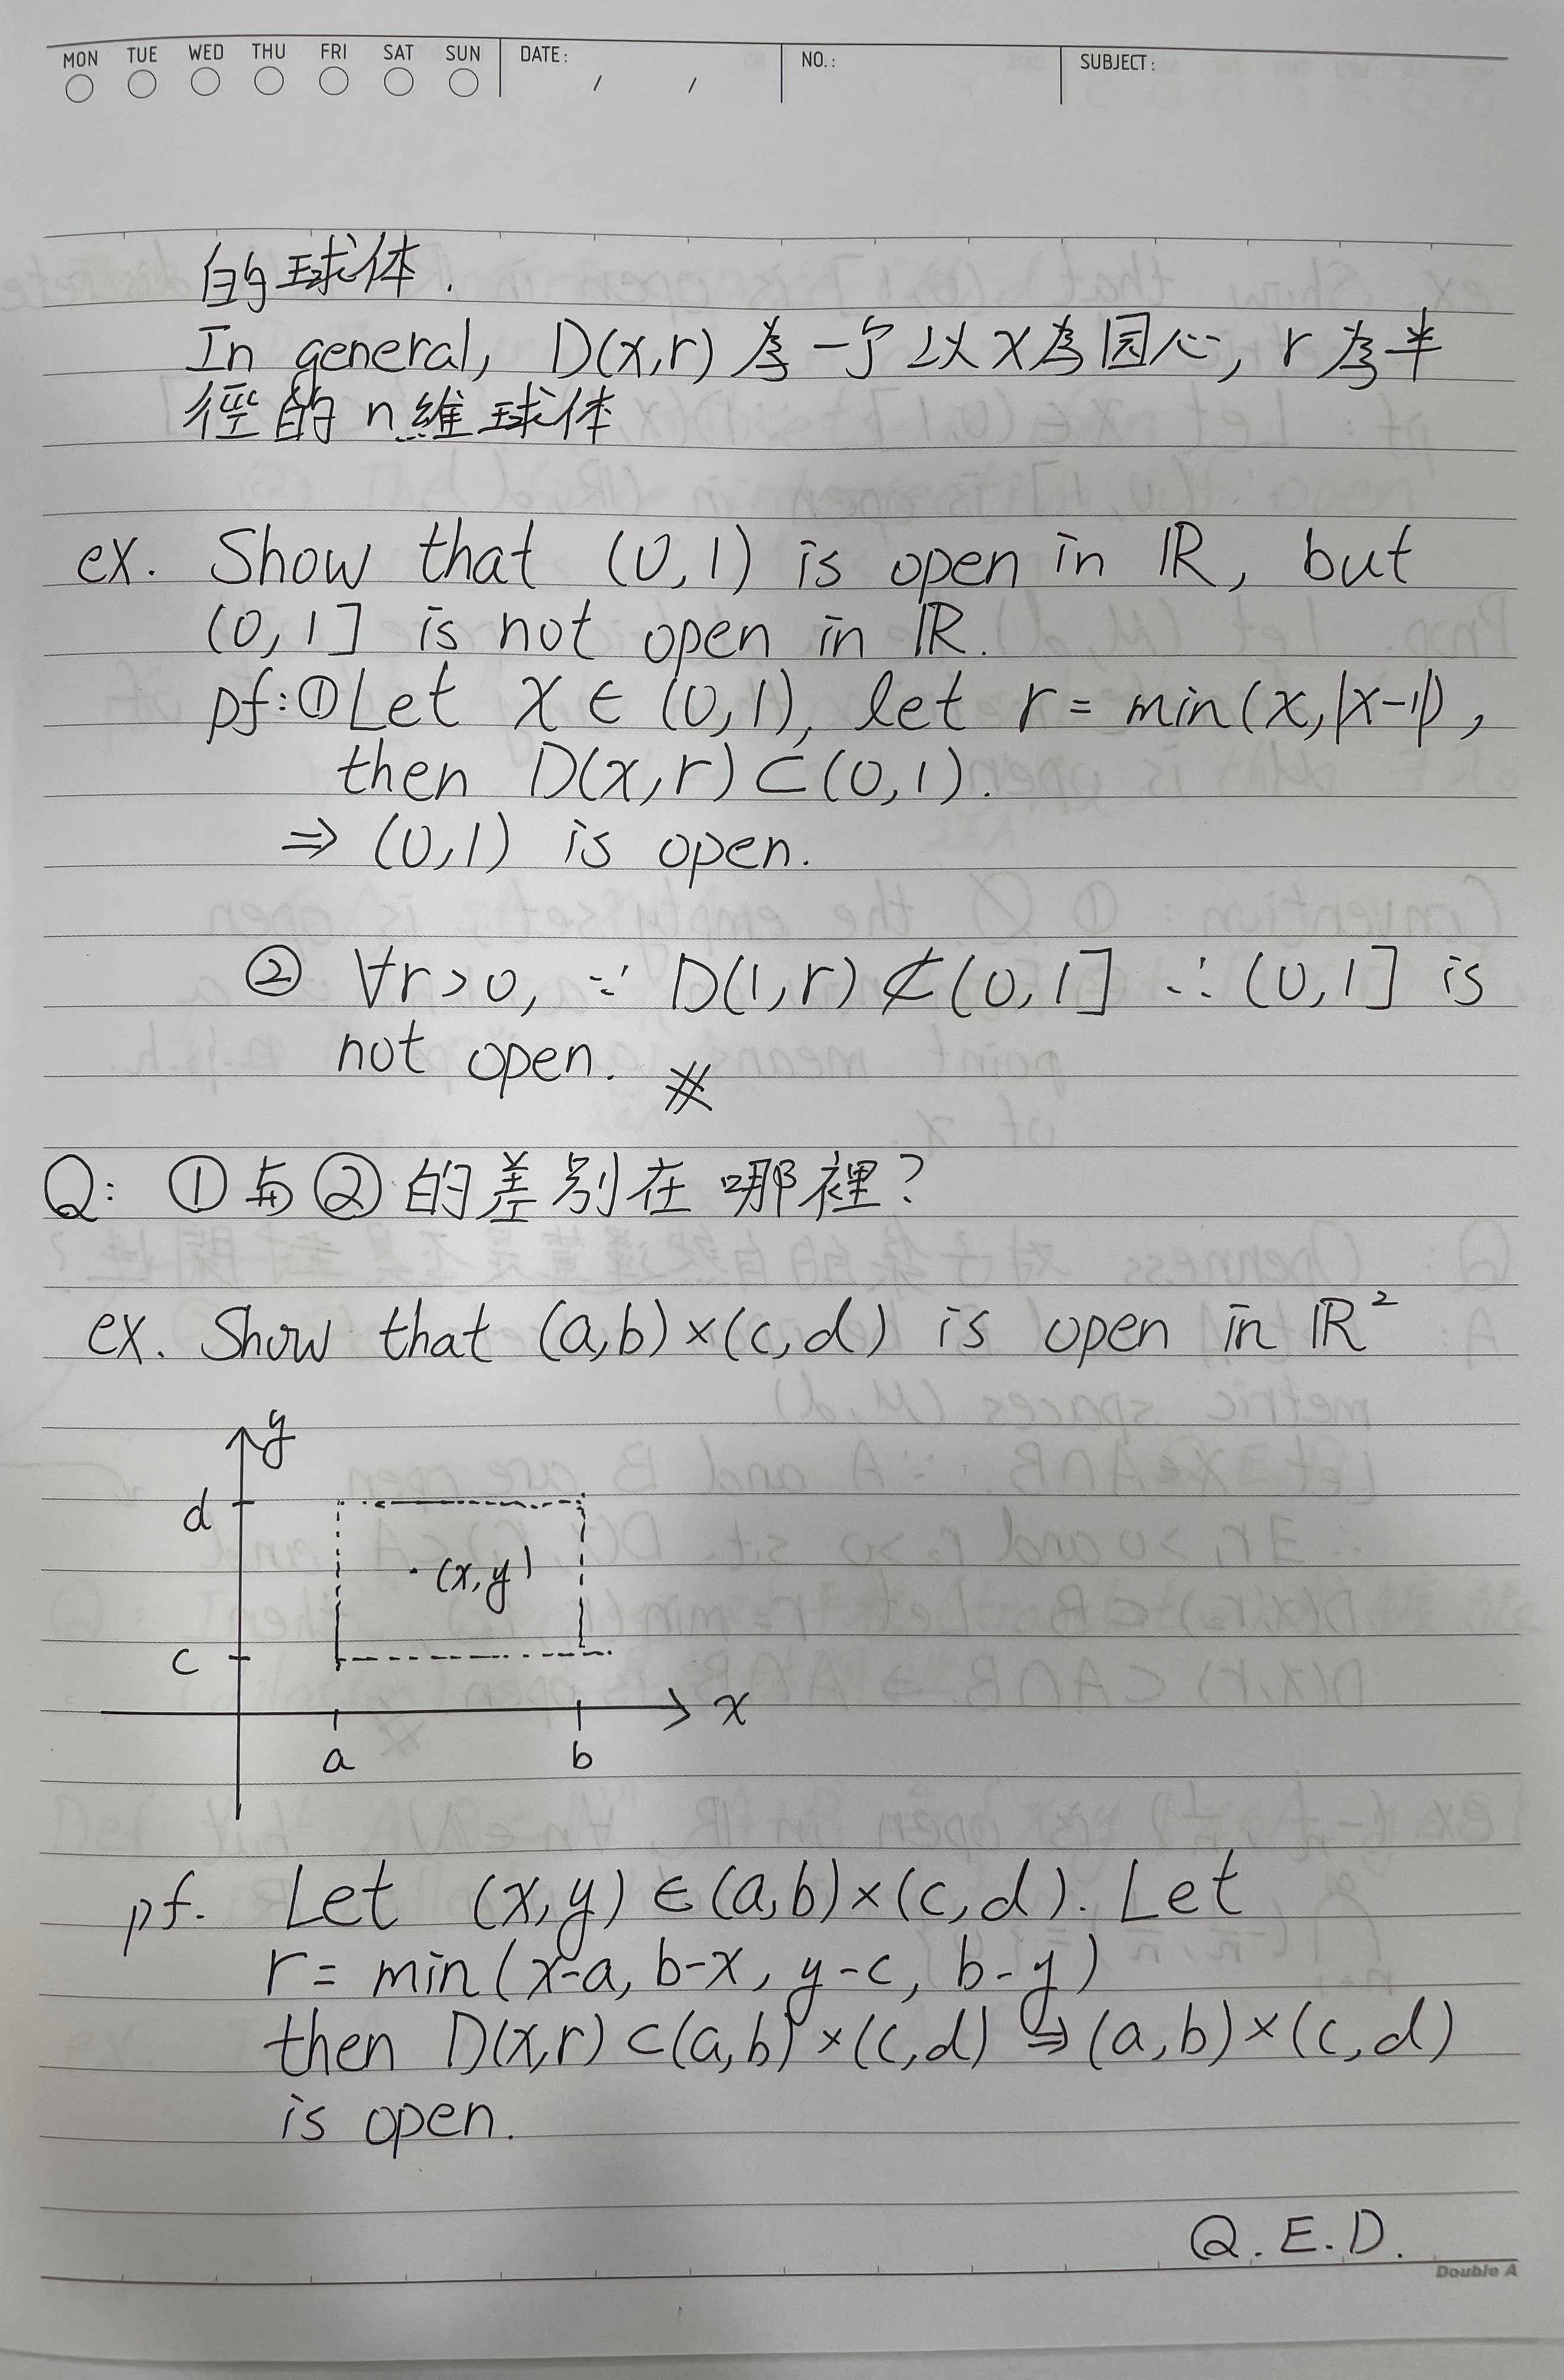 MON TUE WED THU FRI SAT SUN DATE: / / NO.: SUBJECT:
的球体.
In general, D(x,r) 為一个以x為园心, r為半
徑的n維球体
ex. Show that (0,1) is open in ℝ, but
(0,1] is not open in ℝ.
pf:①Let x ∈ (0,1), let r = min(x,|x-1|),
then D(x,r) ⊂ (0,1).
⇒ (0,1) is open.
② ∀r>0, ∵ D(1,r) ⊄ (0,1] ∴ (0,1] is
not open. ※
Q: ①与②的差別在哪裡?
ex. Show that (a,b)×(c,d) is open in ℝ²
y
d
(x,y)
c
x
a b
pf. Let (x,y) ∈ (a,b)×(c,d). Let
r = min(x-a, b-x, y-c, b-y)
then D(x,r) ⊂ (a,b)×(c,d) ⇒ (a,b)×(c,d)
is open.
Q.E.D.
Double A